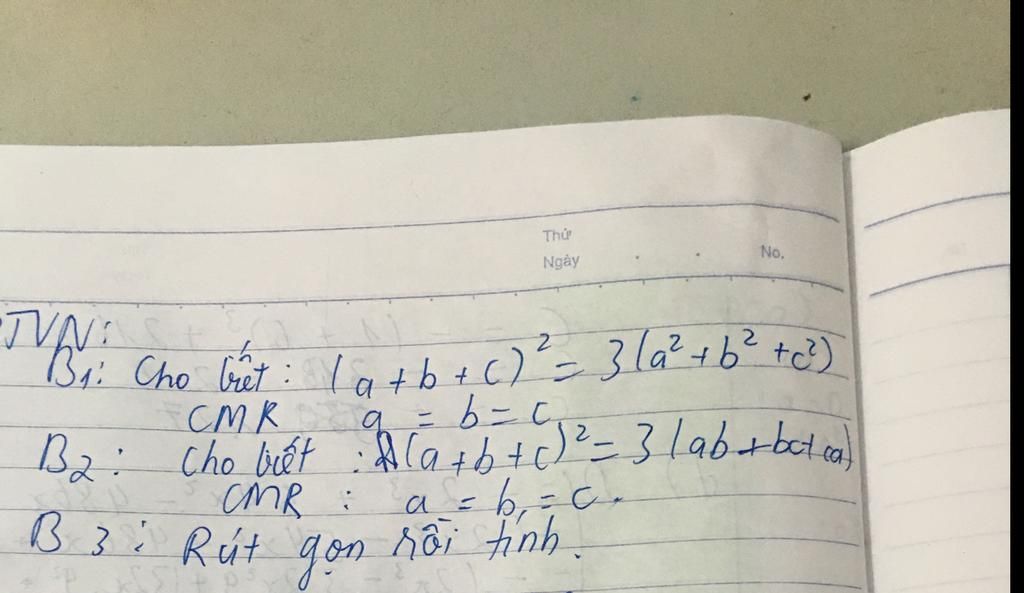 Thứ
Ngày . . No.
TVN:
B1: Cho biết: (a + b + c)² = 3(a² + b² + c²)
CMR a = b = c
B2: Cho biết: (a + b + c)² = 3(ab + bc + ca)
CMR : a = b = c.
B3: Rút gọn rồi tính.